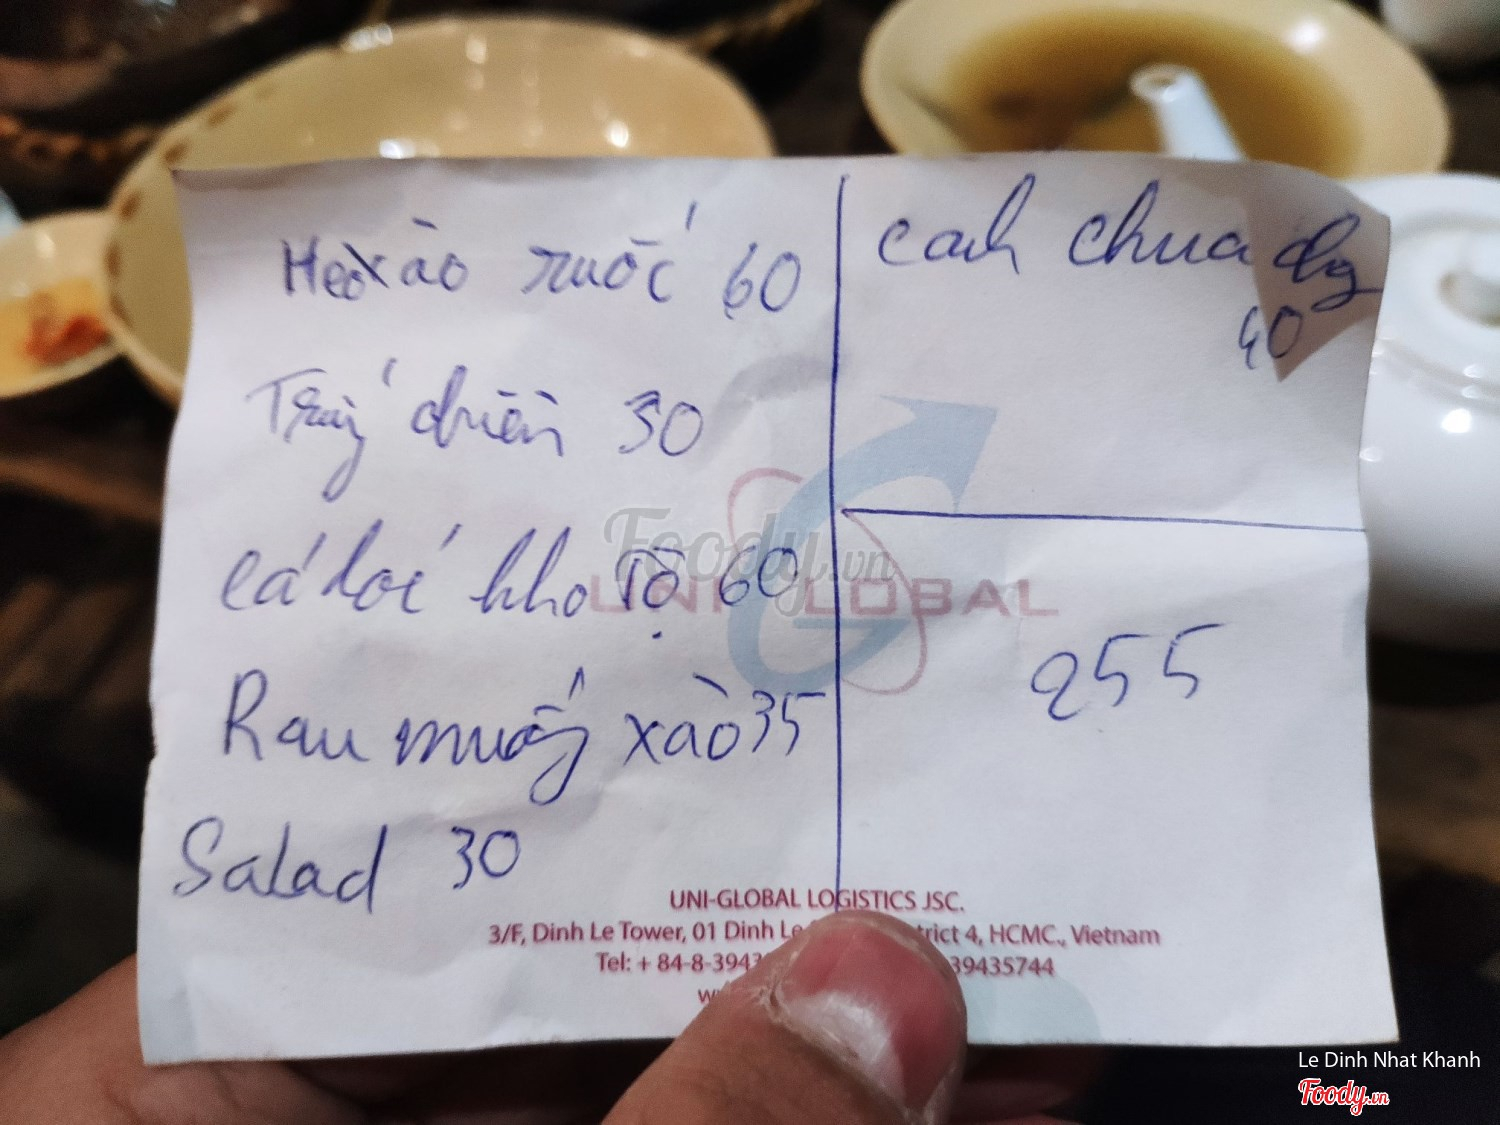 Heo xào ruốc 60
Trứng chiên 30
cá lóc kho Tộ 60
Rau muống xào 35
Salad 30
canh chua
40
255
Foody.vn
UNI-GLOBAL
UNI-GLOBAL LOGISTICS JSC.
3/F, Dinh Le Tower, 01 Dinh Le 4, HCMC., Vietnam
Tel: + 84-8-3943 39435744
Le Dinh Nhat Khanh
Foody.vn